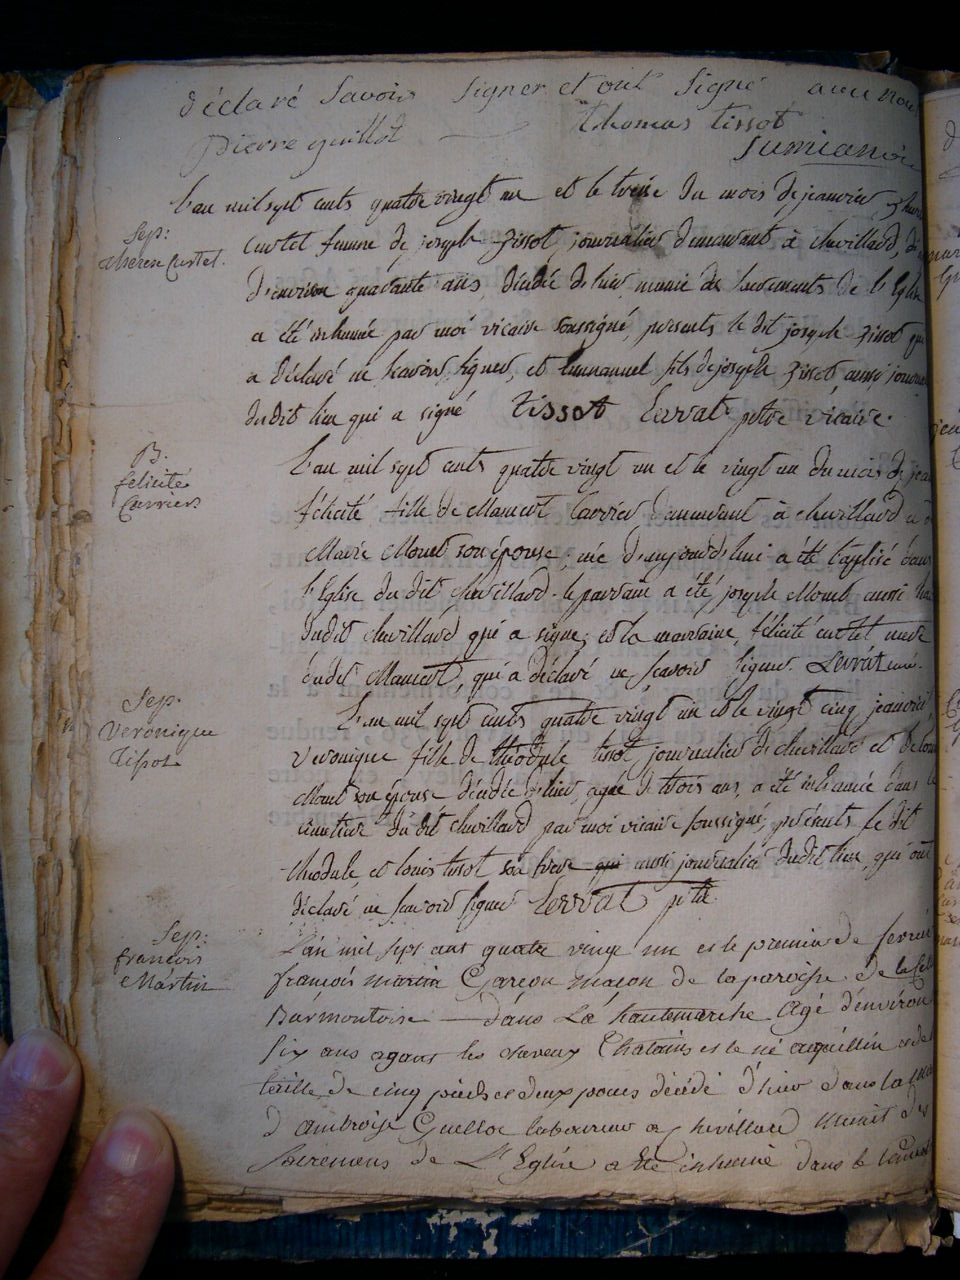 déclaré Savoir Signer et ont Signé avec nous
pierre guillot Thomas tissot
Sumian
L'an mil sept cents quatre vingt un et le treise du mois de jeanvier
Sep:
Curtet femme de joseph Tissot journalier demeurant à chevillard,
therese Curtet.
d'environ quarante ans, décédée d'hier, munie des sacrements de l'Eglise
a été inhumée par moi vicaire soussigné, presents le dit joseph Tissot qui
a déclaré ne scavoir signer, et Emmanuel fils de joseph Tissot aussi
dudit lieu qui a signé Tissot Levrat ptre vicaire.
B.
felicité
Carrier
L'an mil sept cents quatre vingt un et le vingt un du mois de
félicité fille de Mamert Carrier demeurant à chevillard et
Marie Monet son épouse, née d'aujourd'hui a été baptisé dans
l'Eglise du dit chevillard. le parrain a été joseph Monet aussi
dudit chevillard qui a signé, et la marraine félicité curtet
dudit Mamert, qui a déclaré ne scavoir signer. Levrat
Sep.
Veronique
Tissot
L'an mil sept cents quatre vingt un et le vingt cinq jeanvier,
veronique fille de théodule tissot journalier de chevillard et de
Monet son épouse décédée d'hier, agée de trois ans, a été inhumée dans le
cimetiere du dit chevillard par moi vicaire soussigné, présents le dit
théodule et louis tissot son frere qui aussi journalier dudit lieu, qui ont
déclaré ne scavoir signer Levrat ptre
Sep:
francois
Martin
L'an mil sept cent quatre vingt un et le premier de fevrier
françois martin Garçon maçon de la paroisse de la
Barmontoise dans La hautemarche Agé d'environ
Six ans ayant les cheveux Chatains et le né et de
taille de cinq pieds et deux pouces décédé d'hier dans la
d'ambroise Guillot laboureur a chevillard munit des
Sacremens de L'Eglise a été inhumé dans le